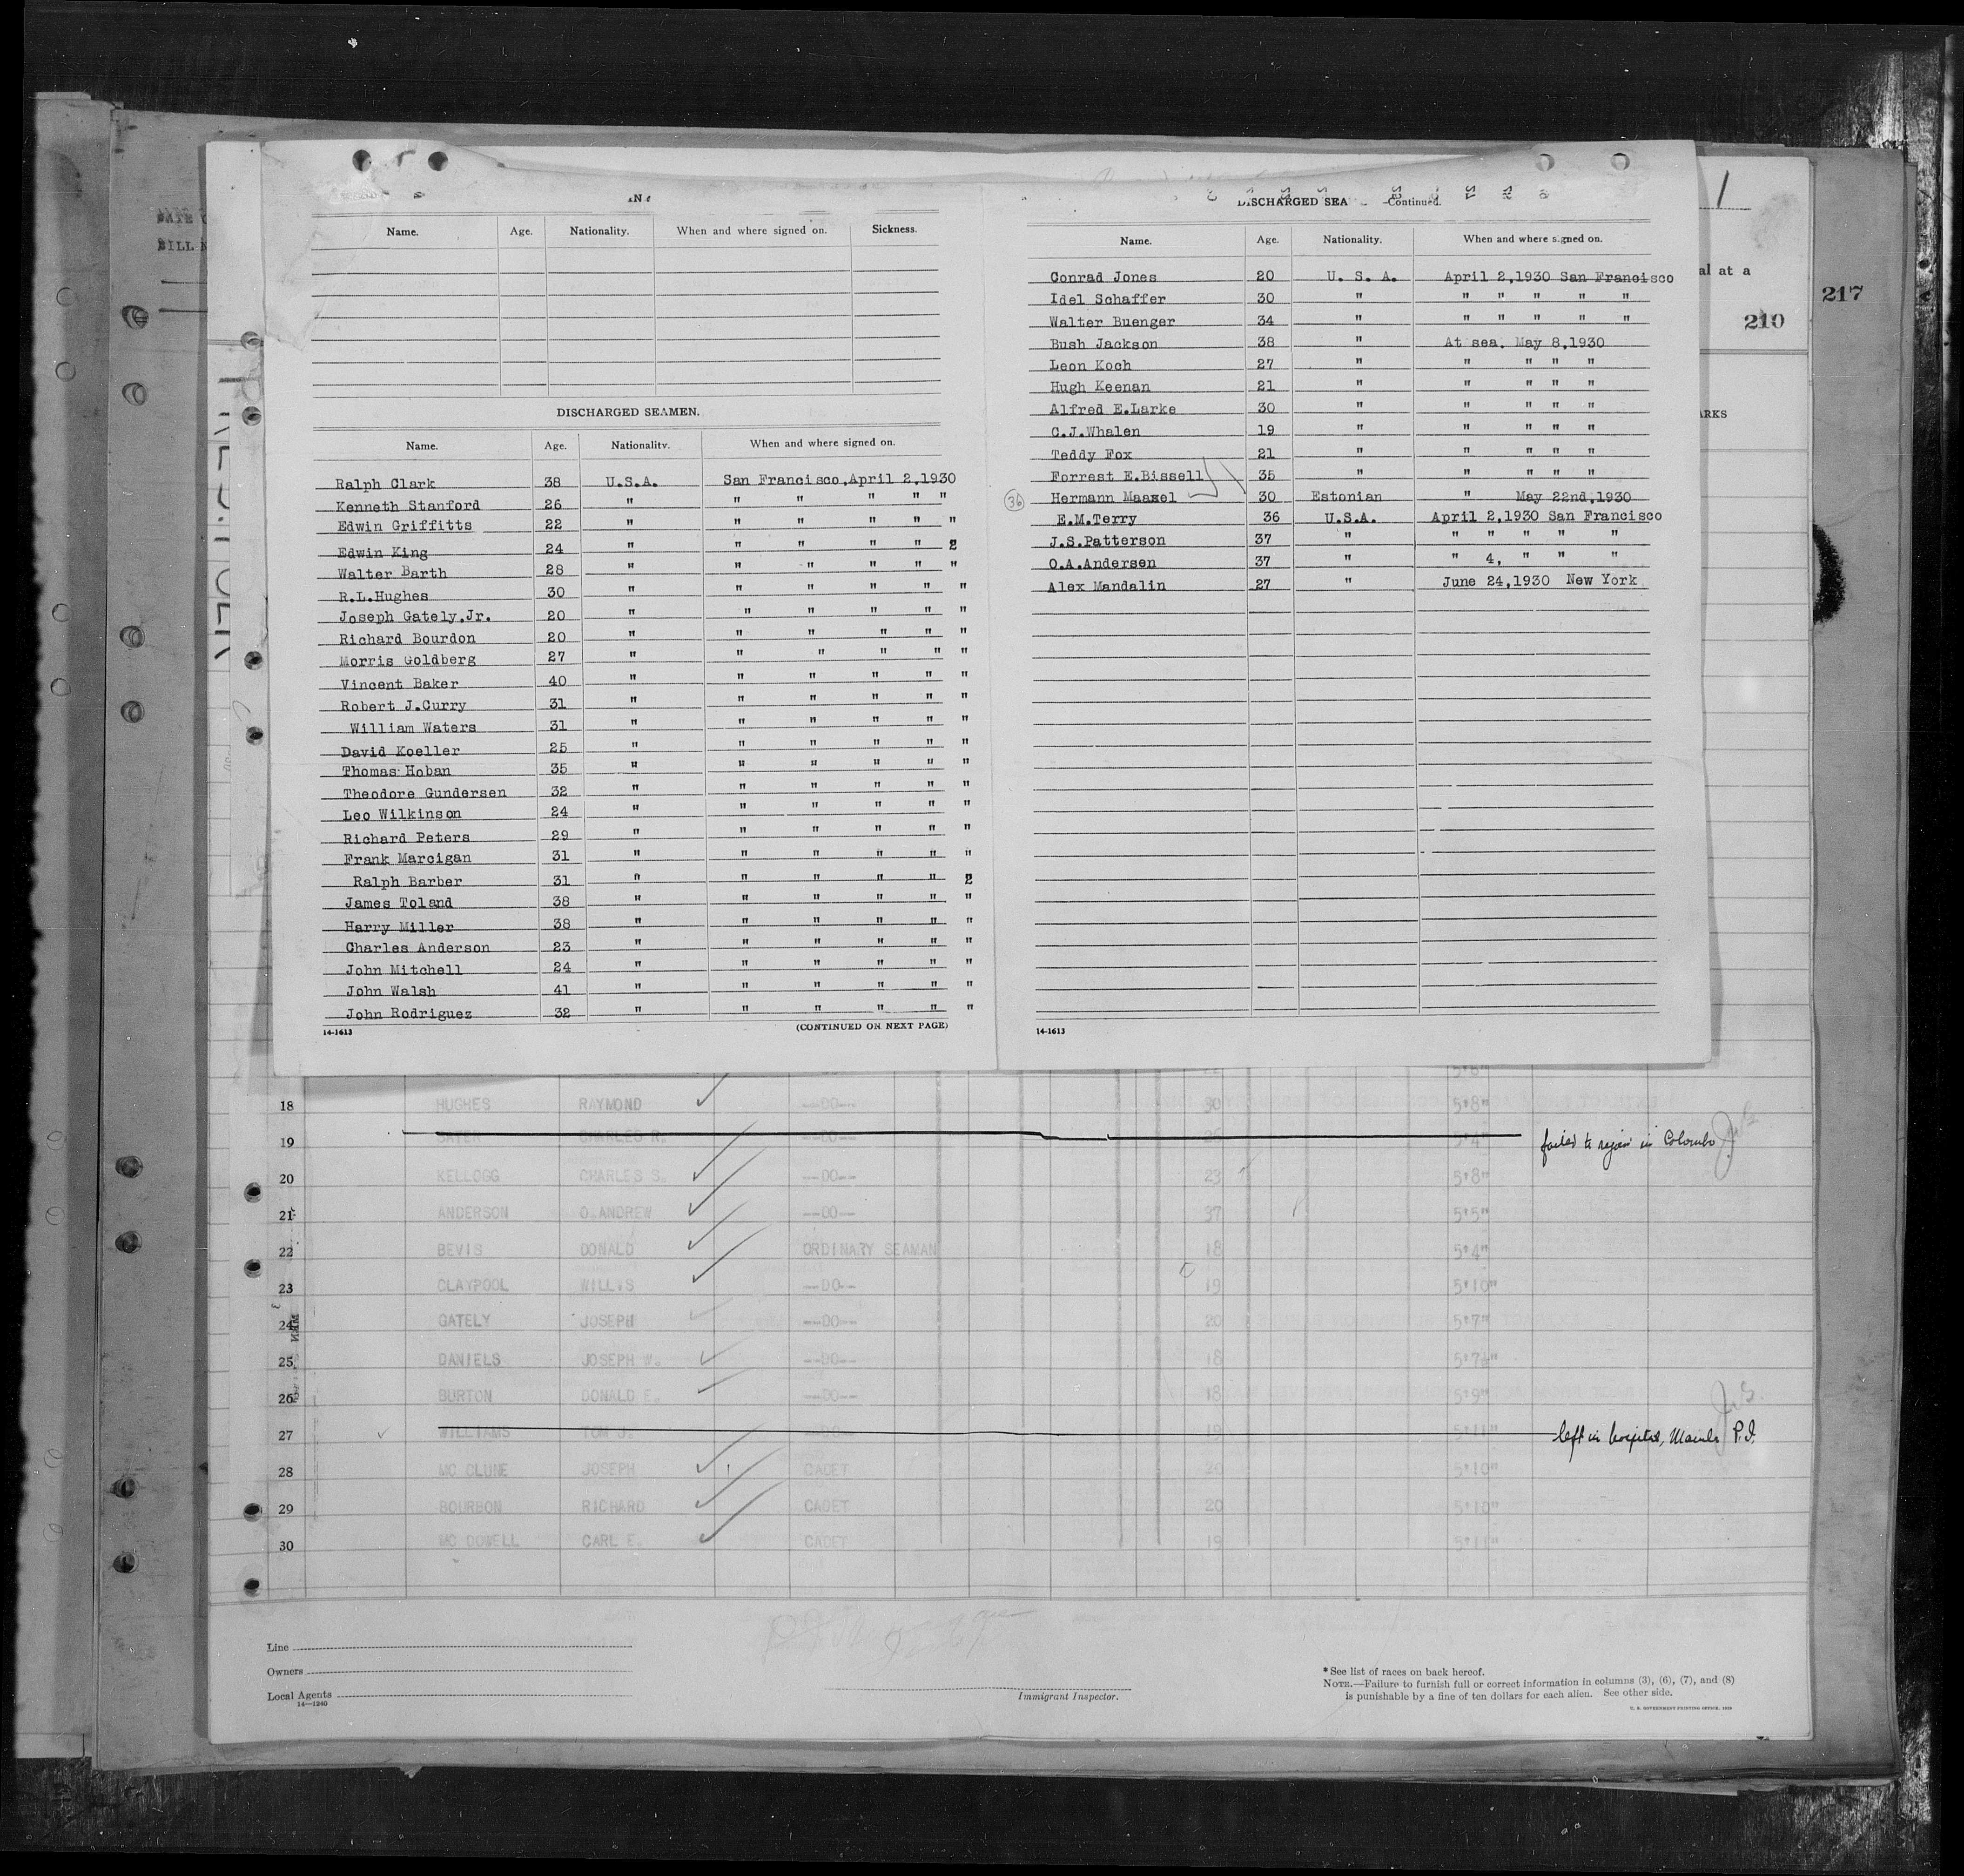 Name. Age. Nationality. When and where signed on. Sickness.
DISCHARGED SEAMEN.
Name. Age. Nationality. When and where signed on.
Ralph Clark 38 U.S.A. San Francisco, April 2, 1930
Kenneth Stanford 26 " " " " " "
Edwin Griffitts 22 " " " " " "
Edwin King 24 " " " " " 2
Walter Barth 28 " " " " " "
R.L.Hughes 30 " " " " " "
Joseph Gately,Jr. 20 " " " " " "
Richard Bourdon 20 " " " " " "
Morris Goldberg 27 " " " " " "
Vincent Baker 40 " " " " " "
Robert J.Curry 31 " " " " " "
William Waters 31 " " " " " "
David Koeller 25 " " " " " "
Thomas Hoban 35 " " " " " "
Theodore Gundersen 32 " " " " " "
Leo Wilkinson 24 " " " " " "
Richard Peters 29 " " " " " "
Frank Marcigan 31 " " " " " "
Ralph Barber 31 " " " " " 2
James Toland 38 " " " " " "
Harry Miller 38 " " " " " "
Charles Anderson 23 " " " " " "
John Mitchell 24 " " " " " "
John Walsh 41 " " " " " "
John Rodriguez 32 " " " " " "
14-1613 (CONTINUED ON NEXT PAGE)
DISCHARGED SEA -Continued.
Name. Age. Nationality. When and where signed on.
Conrad Jones 20 U. S. A. April 2,1930 San Francisco
Idel Schaffer 30 " " " " " "
Walter Buenger 34 " " " " " "
Bush Jackson 38 " At sea. May 8,1930
Leon Koch 27 " " " " "
Hugh Keenan 21 " " " " "
Alfred E.Larke 30 " " " " "
C.J.Whalen 19 " " " " "
Teddy Fox 21 " " " " "
Forrest E.Bissell 35 " " " " "
36 Hermann Maazel 30 Estonian " May 22nd,1930
E.M.Terry 36 U.S.A. April 2,1930 San Francisco
J.S.Patterson 37 " " " " " "
O.A.Andersen 37 " " 4, " " "
Alex Mandalin 27 " June 24,1930 New York
14-1613
1
al at a
217
210
ARKS
BILL
18 HUGHES RAYMOND --DO-- 30 5'8"
19 SATER CHARLES R. --DO-- 5'4" failed to rejoin in Colombo
20 KELLOGG CHARLES S. --DO-- 23 5'8"
21 ANDERSON O.ANDREW --DO-- 37 5'5"
22 BEVIS DONALD ORDINARY SEAMAN 18 5'4"
23 CLAYPOOL WILLIS --DO-- 19 5'10"
24 GATELY JOSEPH --DO-- 20 5'7"
25 DANIELS JOSEPH W. --DO-- 18 5'7½"
26 BURTON DONALD E. --DO-- 18 5'9"
27 WILLIAMS TOM J. --DO-- 19 5'11" left in hospital, Manila P.I.
28 MC CLUNE JOSEPH CADET 20 5'10"
29 BOURBON RICHARD CADET 20 5'10"
30 MC DOWELL CARL E. CADET 19 5'11"
Line
Owners
Local Agents
14—1240
Immigrant Inspector.
* See list of races on back hereof.
NOTE.—Failure to furnish full or correct information in columns (3), (6), (7), and (8)
is punishable by a fine of ten dollars for each alien. See other side.
U. S. GOVERNMENT PRINTING OFFICE